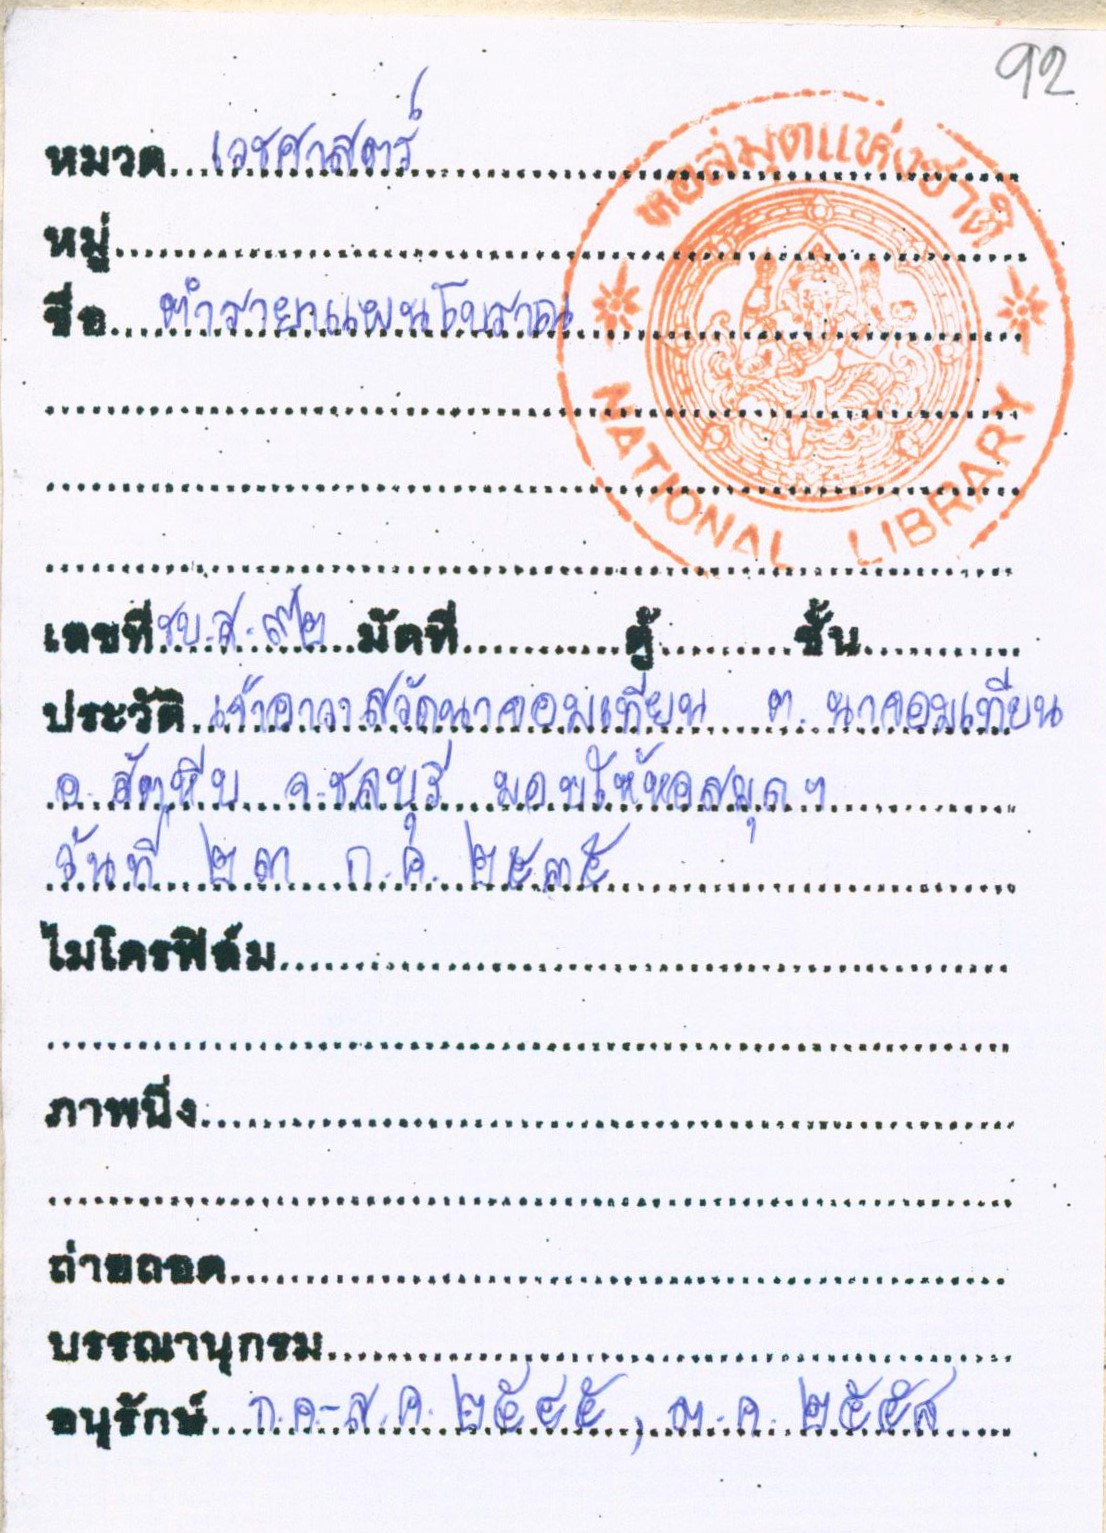 92
หมวด เวชศาสตร์
หอสมุดแห่งชาติ
หมู่
ชื่อ ตำรายาแผนโบราณ
NATIONAL LIBRARY
เลขที่ ชบ.ส. ๙๒ มัดที่ ตู้ ชั้น
ประวัติ เจ้าอาวาสวัดนาจอมเทียน ต. นาจอมเทียน
อ. สัตหีบ จ. ชลบุรี มอบให้หอสมุดฯ
วันที่ ๒๓ ก.ค. ๒๕๓๕
ไมโครฟิล์ม
ภาพนิ่ง
ถ่ายถอด
บรรณานุกรม
อนุรักษ์ ก.ค-ส.ค. ๒๕๔๕ , ต.ค.